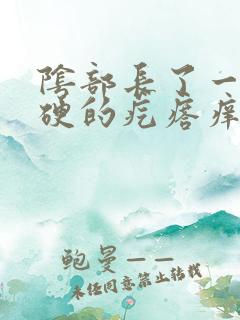 陰部長了一
硬的疙瘩痒
鲍曼——
未经同意禁止转载